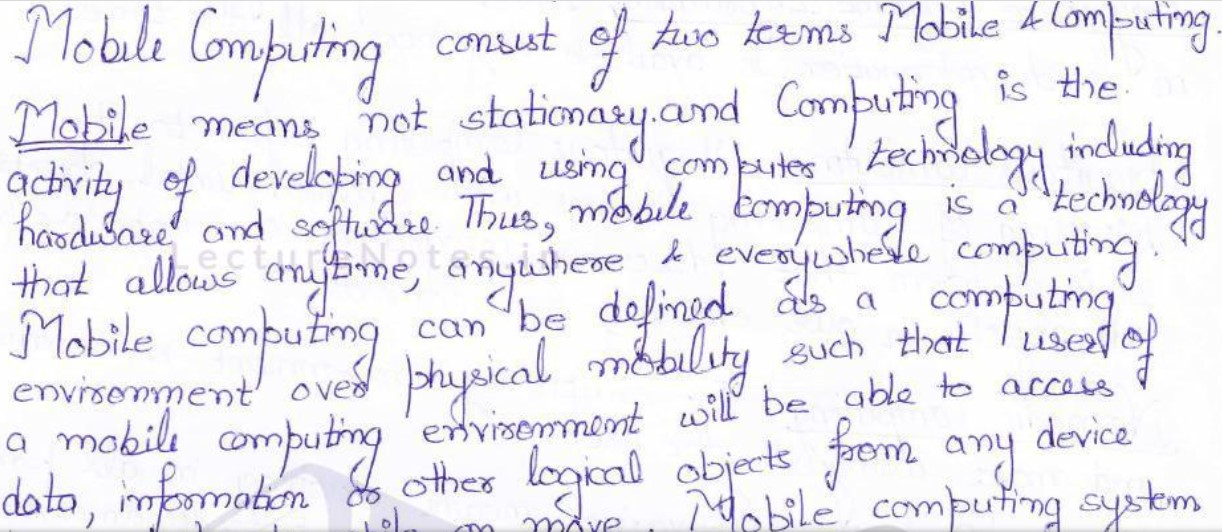 Mobile Computing consist of two terms Mobile & Computing.
Mobile means not stationary.and Computing is the
activity of developing and using computer technology including
hardware and software. Thus, mobile computing is a technology
that allows anytime, anywhere & everywhere computing.
LectureNotes.in
Mobile computing can be defined as a computing
environment over physical mobility such that user of
a mobile computing environment will be able to access
data, information or other logical objects from any device
on move. Mobile computing system